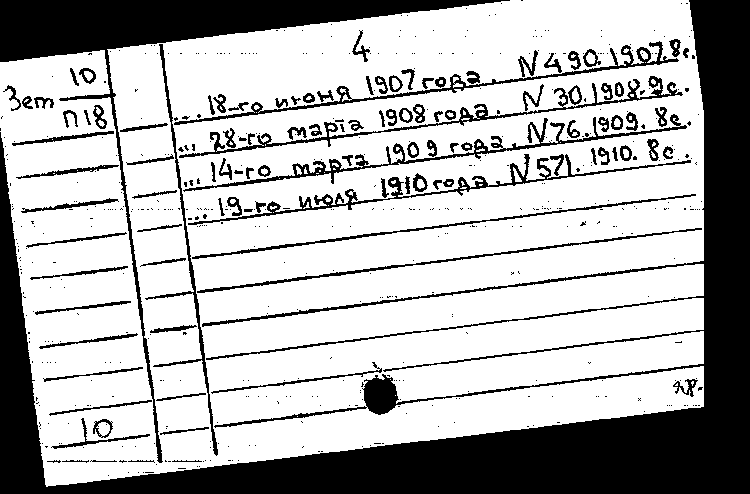 4
Зет 10
П18
... 18-го июня 1907 года. N 490. 1907. 8с.
... 28-го марта 1908 года. N 30. 1908. 9с.
... 14-го марта 1909 года. N 76. 1909. 8с.
... 19-го июля 1910 года. N 571. 1910. 8с.
10